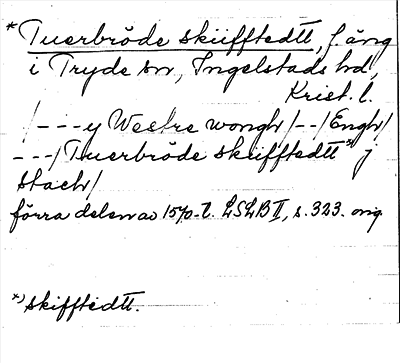 *Tuerbröde skiifftedtt, f. äng
i Tryde sn, Ingelstads hd,
Krist. l.
/---y Westre wongh/--/Engh/
---/Tuerbröde skiifftedtt *) j
stach/
förra delen av 1570-t. LSLB II, s. 323. orig.
*) skifftedtt.